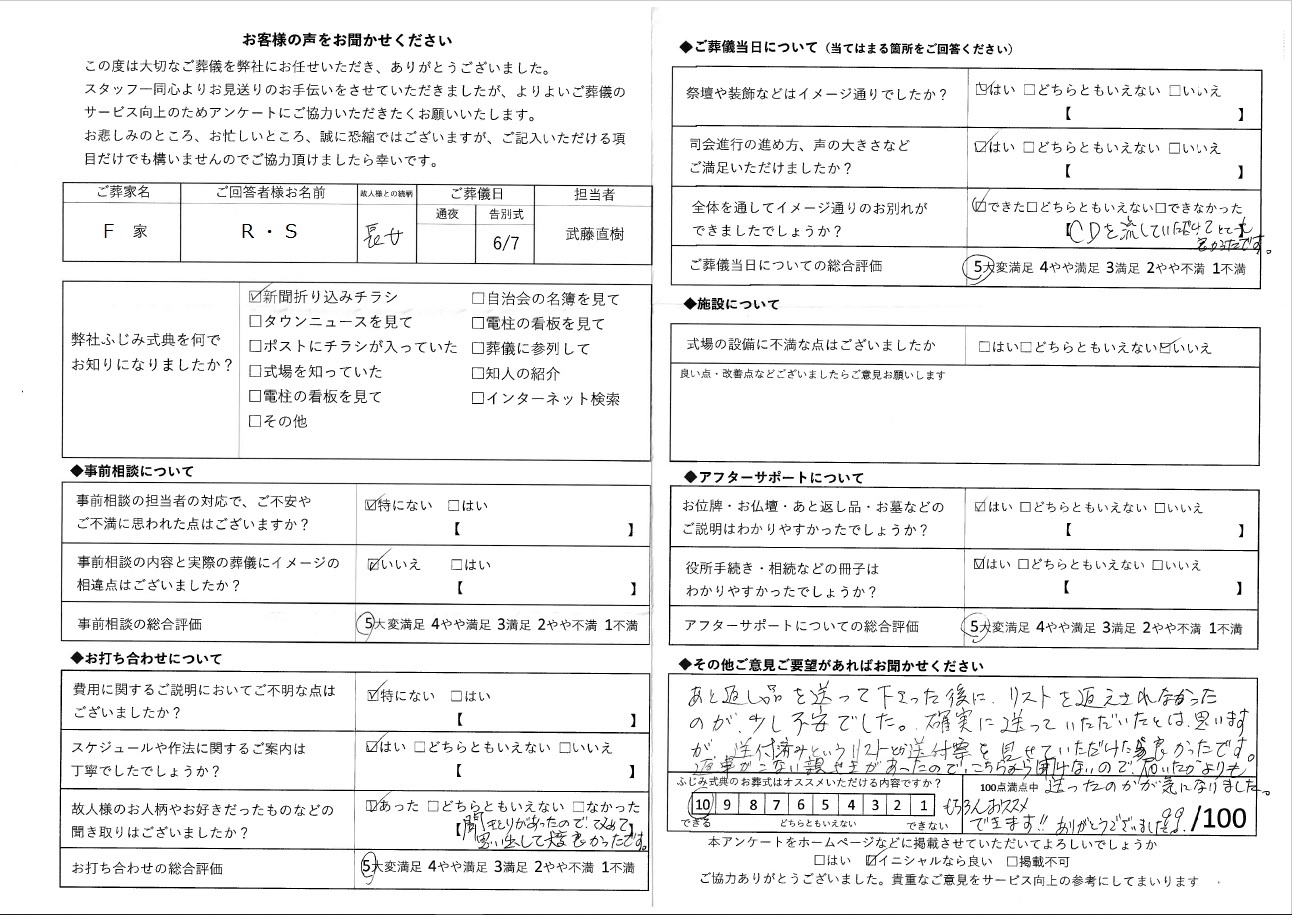 お客様の声をお聞かせください
この度は大切なご葬儀を弊社にお任せいただき、ありがとうございました。
スタッフ一同心よりお見送りのお手伝いをさせていただきましたが、よりよいご葬儀の
サービス向上のためアンケートにご協力いただきたくお願いいたします。
お悲しみのところ、お忙しいところ、誠に恐縮ではございますが、ご記入いただける項
目だけでも構いませんのでご協力頂けましたら幸いです。
ご葬家名 ご回答者様お名前 故人様との続柄 ご葬儀日 担当者
通夜 告別式
F 家 R・S 長女 6/7 武藤直樹
弊社ふじみ式典を何で
お知りになりましたか？
☑新聞折り込みチラシ □自治会の名簿を見て
□タウンニュースを見て □電柱の看板を見て
□ポストにチラシが入っていた □葬儀に参列して
□式場を知っていた □知人の紹介
□電柱の看板を見て □インターネット検索
□その他
◆事前相談について
事前相談の担当者の対応で、ご不安や
ご不満に思われた点はございますか？
☑特にない □はい
【 】
事前相談の内容と実際の葬儀にイメージの
相違点はございましたか？
☑いいえ □はい
【 】
事前相談の総合評価 5大変満足 4やや満足 3満足 2やや不満 1不満
◆お打ち合わせについて
費用に関するご説明においてご不明な点は
ございましたか？
☑特にない □はい
【 】
スケジュールや作法に関するご案内は
丁寧でしたでしょうか？
☑はい □どちらともいえない □いいえ
【 】
故人様のお人柄やお好きだったものなどの
聞き取りはございましたか？
☑あった □どちらともいえない □なかった
【聞きとりがあったので、改めて】
思い出して大変良かったです。
お打ち合わせの総合評価 5大変満足 4やや満足 3満足 2やや不満 1不満
◆ご葬儀当日について（当てはまる箇所をご回答ください）
祭壇や装飾などはイメージ通りでしたか？
☑はい □どちらともいえない □いいえ
【 】
司会進行の進め方、声の大きさなど
ご満足いただけましたか？
☑はい □どちらともいえない □いいえ
【 】
全体を通してイメージ通りのお別れが
できましたでしょうか？
☑できた□どちらともいえない□できなかった
【CDを流していただけてとても】
良かったです。
ご葬儀当日についての総合評価 5大変満足 4やや満足 3満足 2やや不満 1不満
◆施設について
式場の設備に不満な点はございましたか □はい□どちらともいえない☑いいえ
良い点・改善点などございましたらご意見お願いします
◆アフターサポートについて
お位牌・お仏壇・あと返し品・お墓などの
ご説明はわかりやすかったでしょうか？
☑はい □どちらともいえない □いいえ
【 】
役所手続き・相続などの冊子は
わかりやすかったでしょうか？
☑はい □どちらともいえない □いいえ
【 】
アフターサポートについての総合評価 5大変満足 4やや満足 3満足 2やや不満 1不満
◆その他ご意見ご要望があればお聞かせください
あと返し品を送って下さった後に、リストを返えされなかった
のが、少し不安でした。確実に送っていただいたとは思います
が、送付済みというリストとか送付案を見せていただけたら良かったです。
返事がこない親せきがあったので、こちらから聞けないので、届いたかよりも
送ったのかが気になりました。
ふじみ式典のお葬式はオススメいただける内容ですか？
10 9 8 7 6 5 4 3 2 1
できる どちらともいえない できない
もちろんおススメ
できます!! ありがとうございました。
100点満点中
99/100
本アンケートをホームページなどに掲載させていただいてよろしいでしょうか
□はい ☑イニシャルなら良い □掲載不可
ご協力ありがとうございました。貴重なご意見をサービス向上の参考にしてまいります